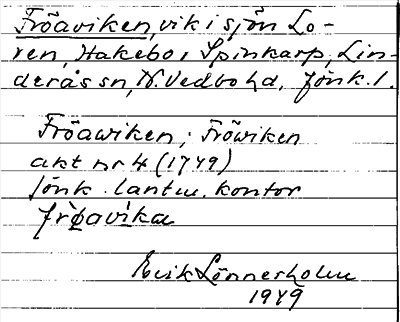 Fröaviken, vik i sjön Lo-
ren, Hakebo, Spinkarp, Lin-
derås sn, N. Vedbo hd, Jönk. l.
Fröawiken; Fröwiken
akt nr 4 (1749)
Jönk. lantm. kontor
frø̀avika
Erik Lönnerholm
1949